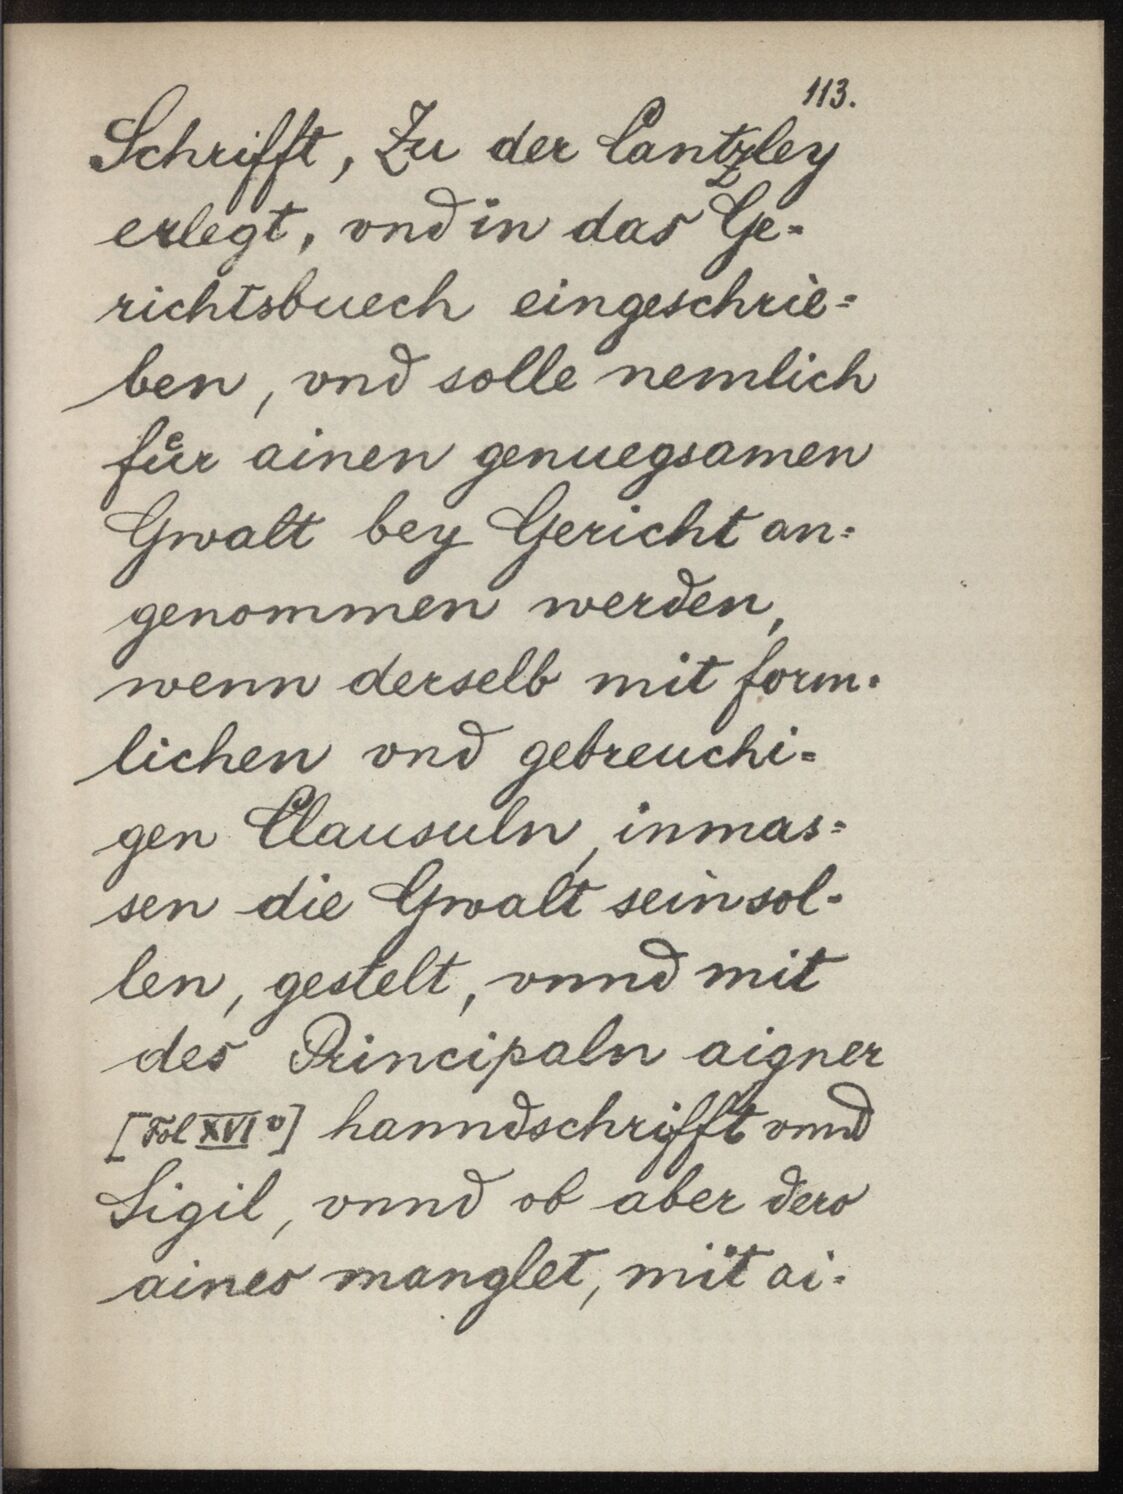 113.
Schrifft, Zu der Cantzley
erlegt, vnd in das Ge=
richtsbuech eingeschrie=
ben, vnd solle nemlich
fuͤr ainen genuegsamen
Gwalt bey Gericht an=
genommen werden,
wenn derselb mit form=
lichen vnd gebreuchi=
gen Clausuln, inmas=
sen die Gwalt sein sol=
len, gestelt, vnnd mit
des Principaln aigner
[Fol XVI v] hanndschrifft vnnd
Sigil, vnnd ob aber dero
aines manglet, mit ai=